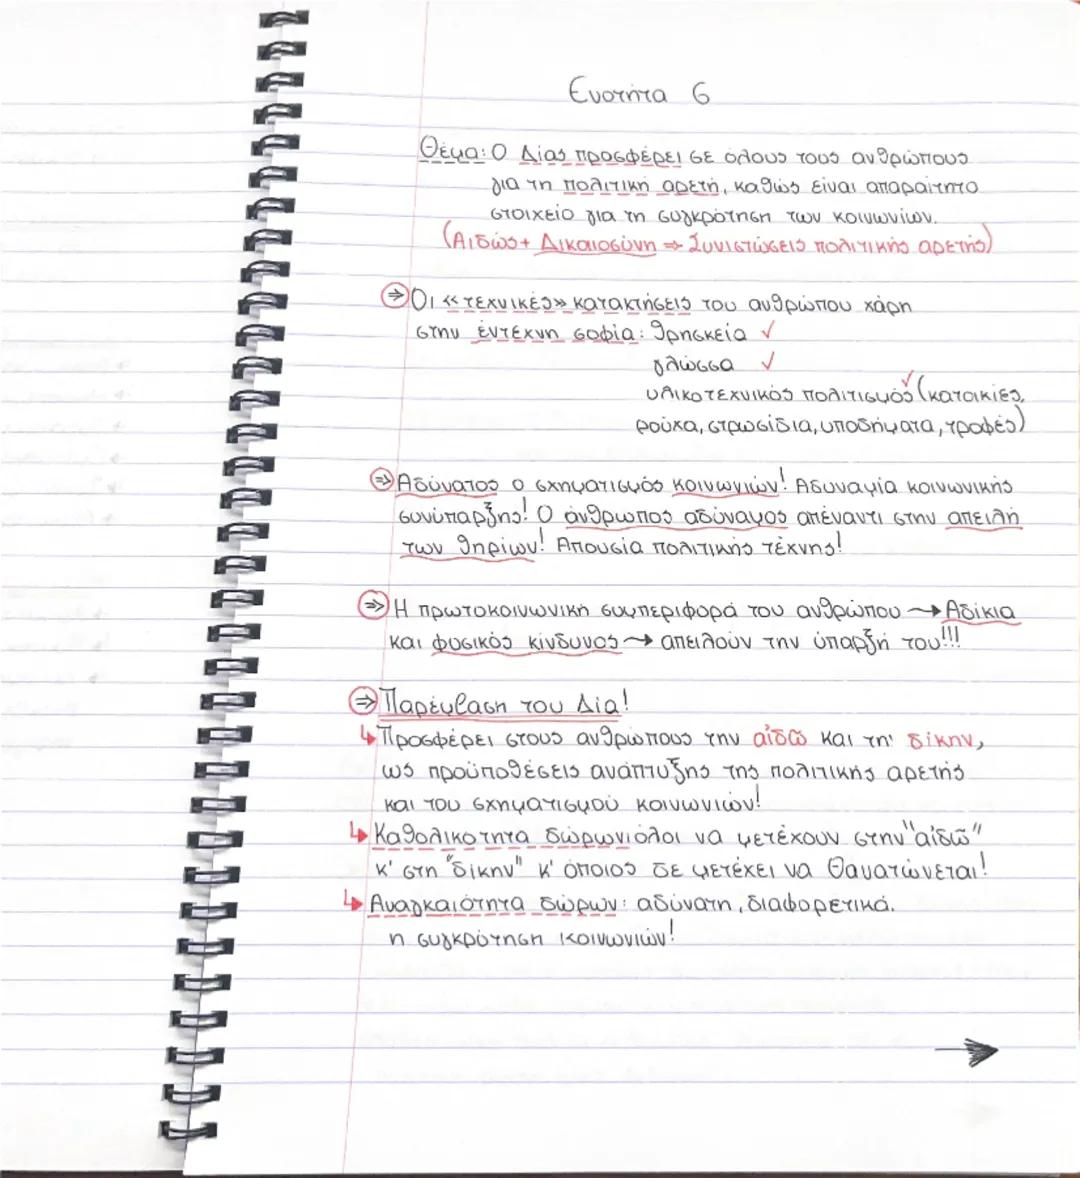 Ενότητα 6
Θέμα: Ο Δίας προσφέρει σε όλους τους ανθρώπους
για τη πολιτική αρετή, καθώς είναι απαραίτητο
στοιχείο για τη συγκρότηση των κοινωνιών.
(Αιδώς + Δικαιοσύνη ⇒ Συνιστώσεις πολιτικής αρετής)
⇒ Οι «τεχνικές» κατακτήσεις του ανθρώπου χάρη
στην έντεχνη σοφία: θρησκεία ✓
γλώσσα ✓
υλικοτεχνικός πολιτισμός ✓ (κατοικίες,
ρούχα, στρωσίδια, υποδήματα, τροφές)
⇒ Αδύνατος ο σχηματισμός κοινωνιών! Αδυναμία κοινωνικής
συνύπαρξης! Ο άνθρωπος αδύναμος απέναντι στην απειλή
των θηρίων! Απουσία πολιτικής τέχνης!
⇒ Η πρωτοκοινωνική συμπεριφορά του ανθρώπου → Αδίκια
και φυσικός κίνδυνος → απειλούν την ύπαρξή του!!!
⇒ Παρέμβαση του Δία!
↳ Προσφέρει στους ανθρώπους την αἰδῶ και τη' δίκην,
ως προϋποθέσεις ανάπτυξης της πολιτικής αρετής
και του σχηματισμού κοινωνιών!
↳ Καθολικότητα δώρων: όλοι να μετέχουν στην "αἰδῶ"
κ' στη "δίκην" κ' όποιος δε μετέχει να θανατώνεται!
↳ Αναγκαιότητα δώρων: αδύνατη, διαφορετικά.
η συγκρότηση κοινωνιών!